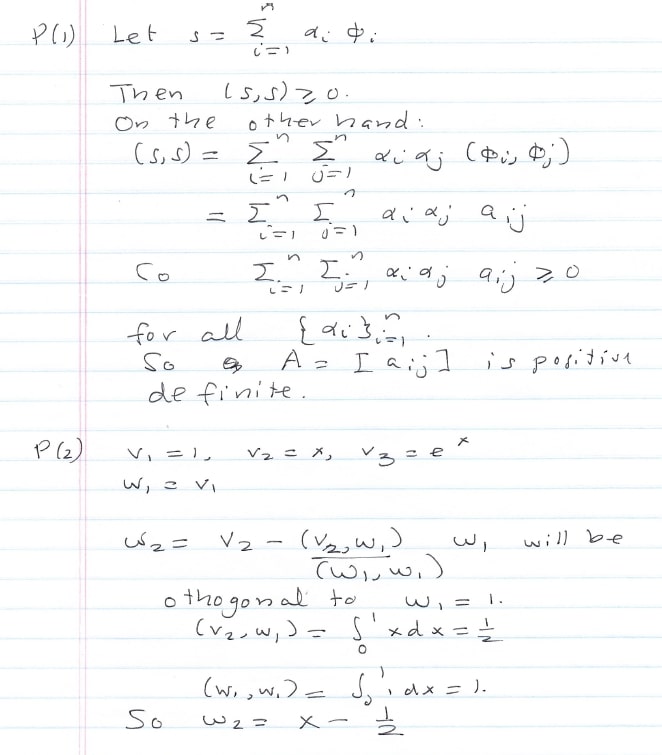 P(1) Let s = Σ_{i=1}^{n} α_i ϕ_i
Then (s,s) ≥ 0.
On the other hand:
(s,s) = Σ_{i=1}^{n} Σ_{j=1}^{n} α_i α_j (ϕ_i, ϕ_j)
= Σ_{i=1}^{n} Σ_{j=1}^{n} α_i α_j a_ij
So Σ_{i=1}^{n} Σ_{j=1}^{n} α_i α_j a_ij ≥ 0
for all {α_i}_{i=1}^{n}.
So A = [a_ij] is positive
definite.
P(2) v_1 = 1, v_2 = x, v_3 = e^x
w_1 = v_1
w_2 = v_2 - (v_2, w_1)/(w_1, w_1) w_1 will be
othogonal to w_1 = 1.
(v_2, w_1) = ∫_0^1 x dx = 1/2
(w_1, w_1) = ∫_0^1 1 dx = 1.
So w_2 = x - 1/2